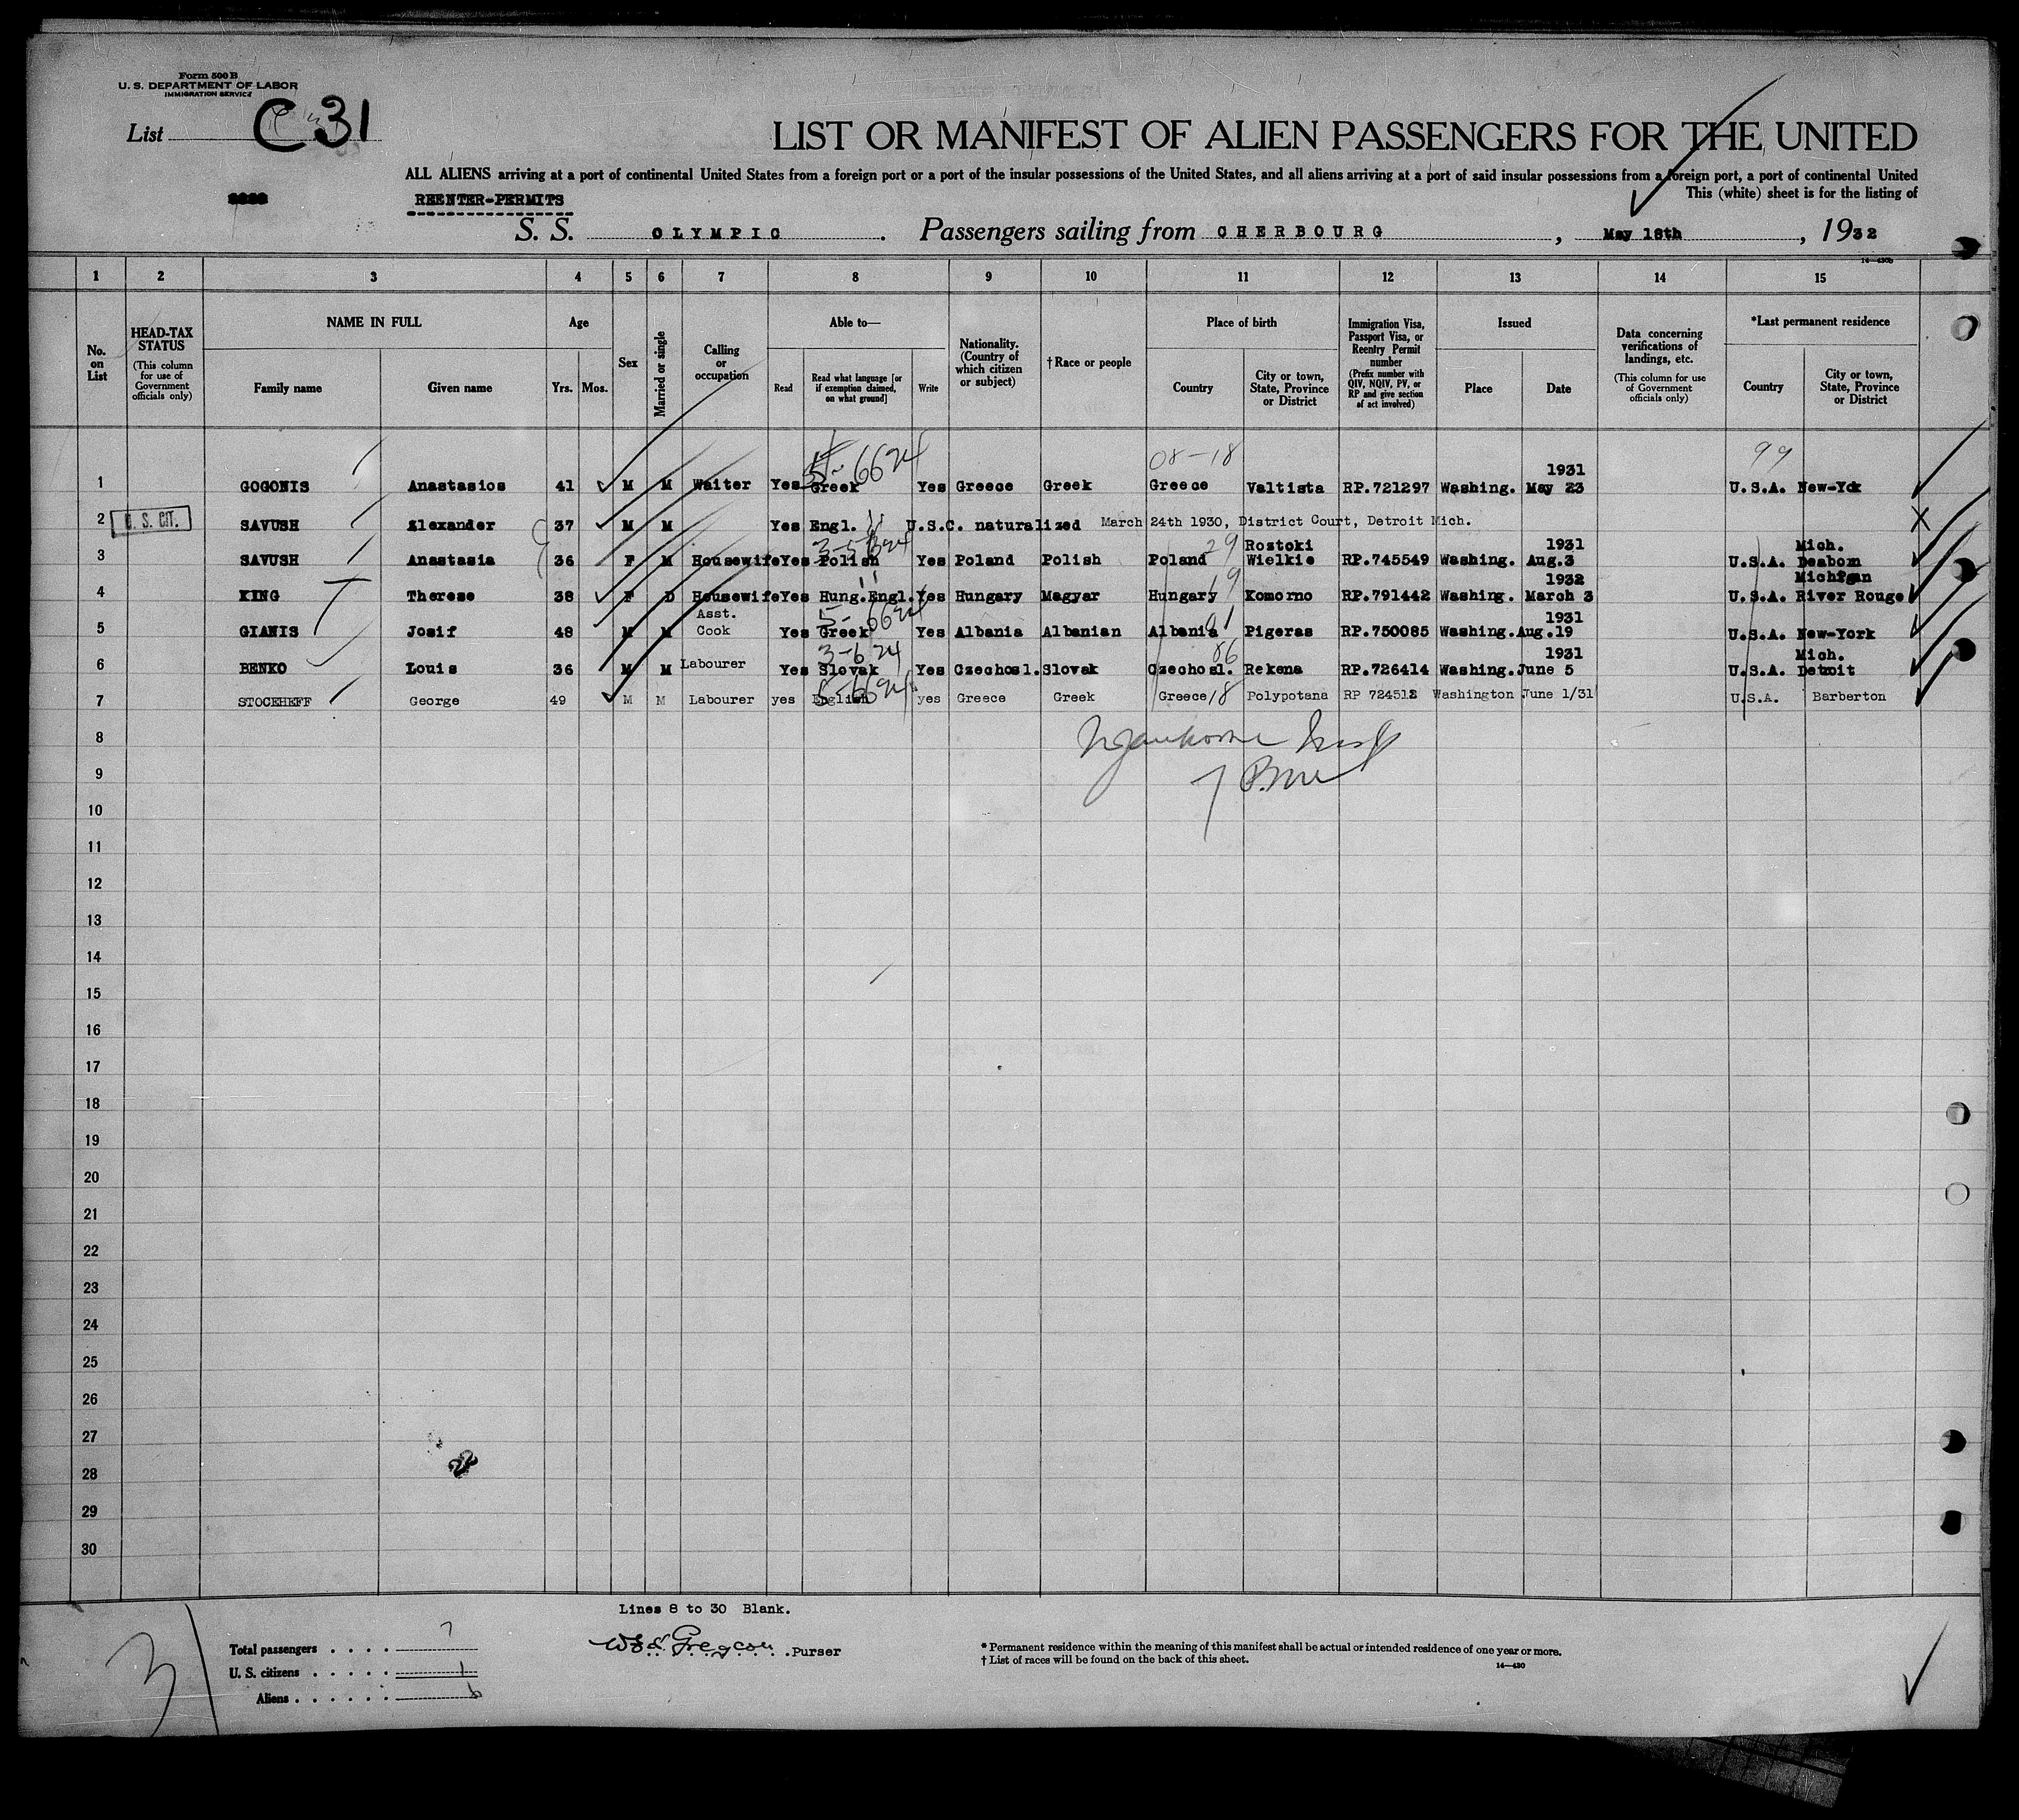 Form 500 B
U. S. DEPARTMENT OF LABOR
IMMIGRATION SERVICE
List C 31
LIST OR MANIFEST OF ALIEN PASSENGERS FOR THE UNITED
ALL ALIENS arriving at a port of continental United States from a foreign port or a port of the insular possessions of the United States, and all aliens arriving at a port of said insular possessions from a foreign port, a port of continental United
This (white) sheet is for the listing of
REENTER-PERMITS
S. S. OLYMPIC. Passengers sailing from CHERBOURG, May 18th, 1932
14—430b
1 2 3 4 5 6 7 8 9 10 11 12 13 14 15
No. on List
HEAD-TAX STATUS (This column for use of Government officials only)
NAME IN FULL
Family name Given name
Age
Yrs. Mos.
Sex
Married or single
Calling or occupation
Able to—
Read Read what language [or if exemption claimed, on what ground] Write
Nationality. (Country of which citizen or subject)
†Race or people
Place of birth
Country City or town, State, Province or District
Immigration Visa, Passport Visa, or Reentry Permit number (Prefix number with QIV, NQIV, PV, or RP and give section of act involved)
Issued
Place Date
Data concerning verifications of landings, etc. (This column for use of Government officials only)
*Last permanent residence
Country City or town, State, Province or District
5-6624 08-18 99
1931
1 GOGONIS Anastasios 41 M M Waiter Yes Greek Yes Greece Greek Greece Valtista RP.721297 Washing. May 23 U.S.A. New-Yok
2 U. S. CIT. SAVUSH Alexander 37 M M Yes Engl. U.S.C. naturalized March 24th 1930, District Court, Detroit Mich. X
29 Rostoki 1931 Mich.
3 SAVUSH Anastasia 36 F M Housewife Yes Polish Yes Poland Polish Poland Wielkie RP.745549 Washing. Aug.3 U.S.A. Deabom
19 1932 Michigan
4 KING Therese 38 F D Housewife Yes Hung.Engl. Yes Hungary Magyar Hungary Komorno RP.791442 Washing. March 3 U.S.A. River Rouge
Asst. 5-6624 1931
5 GIANIS Josif 48 M M Cook Yes Greek Yes Albania Albanian Albania 91 Pigeras RP.750085 Washing. Aug.19 U.S.A. New-York
3-624 86 1931 Mich.
6 BENKO Louis 36 M M Labourer Yes Slovak Yes Czechosl. Slovak Czechosl. Rekena RP.726414 Washing. June 5 U.S.A. Detroit
5-6624
7 STOCEHEFF George 49 M M Labourer yes English yes Greece Greek Greece 18 Polypotana RP 724512 Washington June 1/31 U.S.A. Barberton
8
9
10
11
12
13
14
15
16
17
18
19
20
21
22
23
24
25
26
27
28
29
30
Lines 8 to 30 Blank.
3
Total passengers . . . . 7
U. S. citizens . . . . . 1
Aliens . . . . . . 6
Purser
* Permanent residence within the meaning of this manifest shall be actual or intended residence of one year or more.
† List of races will be found on the back of this sheet.
14—430